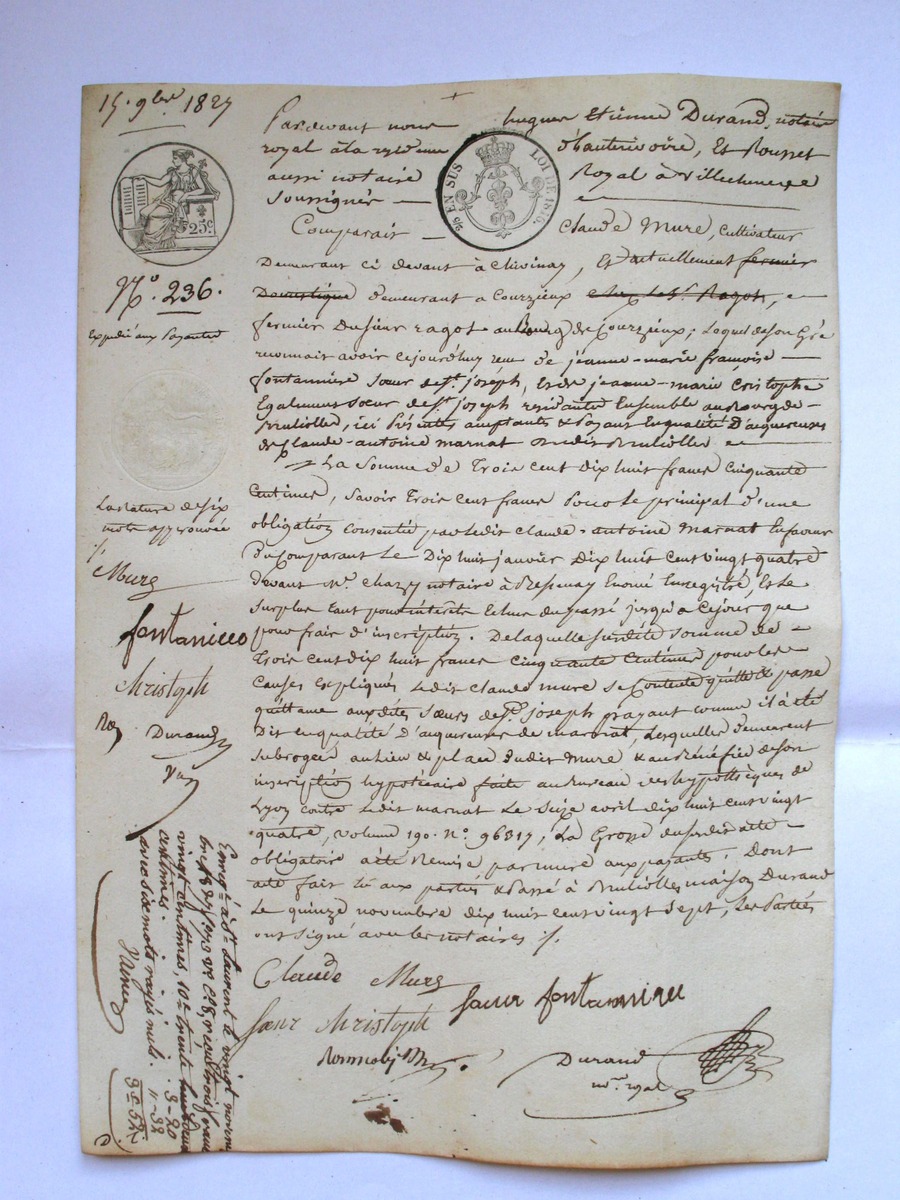 15. 9bre 1827
Pardevant nous hugues Etienne Durand, notaire
royal à la residence d'hauterivoire, Et Rousset
aussi notaire Royal à villechenève
soussignés
EN SUS LOI DE 1816.
25c
Comparait Claude Mure, Cultivateur
Demeurant ci devant à Chevinay, Et actuellement fermier
Domestique demeurant a Courzieux chez le Sr. Ragot,
fermier du sieur ragot au Bourg de Courzieux; Lequel de son Gré
reconnait avoir cejourd'huy reçu de jeanne-marie françoise
fontanniere Sœur de St. joseph, Et de jeanne-marie Cristophe
Egalement sœur de St. joseph residante Ensemble au Bourg de
Brulliolles, ici Présentes aceptants & Payans En qualité d'acquereuses
de Claude-antoine marnat dudit Brulliolles
La Somme de Trois Cent dix huit francs Cinquante
Centimes, Savoir Trois Cent francs Pour Le principal d'une
obligation Consentie par Ledit Claude-antoine Marnat En faveur
du Comparant Le Dix huit janvier Dix huit Cent vingt quatre
devant Me. Chazy notaire à Bessenay Enormé Enregistré, Et Le
surplus tant pour interets Echus du passé jusqu'a Ce jour que
pour frais d'inscription. De laquelle susdite somme de
trois Cent dix huit francs Cinquante Centimes pour les
Causes Expliqués Ledit Claude mure se Contente quitte & passe
quittance auxdites Sœurs de St. joseph payant comme il a été
dit En qualité d'acquereuses de marnat, Lesquelles demeurent
subrogées au lieu & place dudit Mure & au Bénéfice de son
inscription hypotécaire faite au Bureau des hypothèques de
Lyon Contre Ledit marnat Le Seize avril dix huit Cent vingt
quatre, volume 190. No. 96317; La Grosse dususdit acte
obligatoire a été Remise par mure aux payants. Dont
acte fait Lu aux parties & Passé à Brulliolles maison Durand
Le quinze novembre dix huit Cent vingt Sept, Les Parties
ont signé avec les notaires ./.
Claude Mure
Sœur fontanniere
Sœur Christophe
Durand
nore royal
No. 236.
Expédié aux Payantes
La rature de six
mots approuvée
./.
Mure
fontaniere
Christoph
Durand
Enregé à St. Laurent le vingt novembre
vingt centimes, 10e trente
centimes.
avec six mots rayés nuls.
3-20
"-32
3f-52c